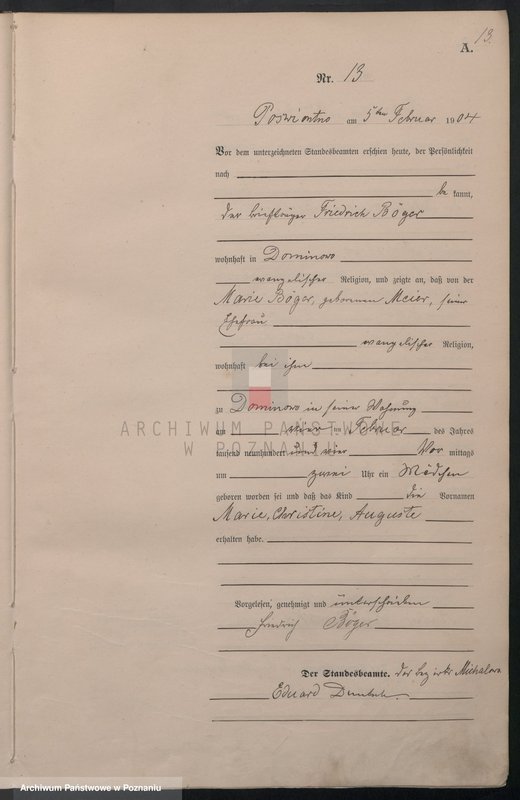 13.
A.
Nr. 13
am 5ten Februar 1904
Vor dem unterzeichneten Standesbeamten erschien heute, der Persönlichkeit
nach
be kannt,
der Briefträger Friedrich Böger
wohnhaft in Dominowo
evangelischer Religion, und zeigte an, daß von der
Marie Böger, geborenen Meier, seiner
Ehefrau
evangelischer Religion,
wohnhaft bei ihm
zu Dominowo in seiner Wohnung
ARCHIWUM PAŃSTWOWE
W POZNANIU
am vier ten Februar des Jahres
tausend neunhundert und vier Vor mittags
um zwei Uhr ein Mädchen
geboren worden sei und daß das Kind die Vornamen
Marie, Christine, Auguste
erhalten habe.
Vorgelesen, genehmigt und unterschrieben
Friedrich Böger
Der Standesbeamte.
Eduard
Archiwum Państwowe w Poznaniu